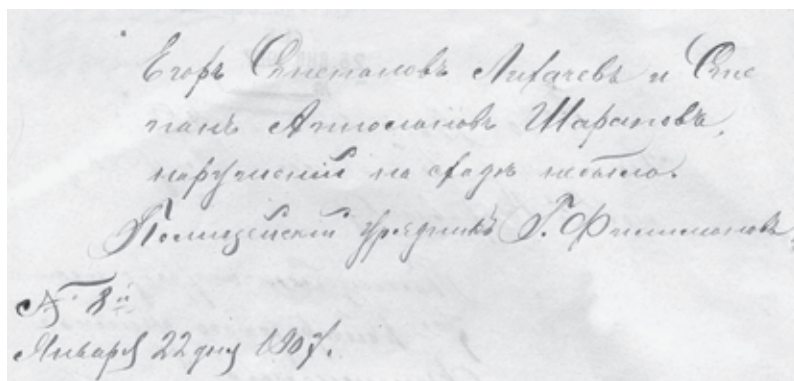 Егоръ Степановъ Лихачевъ и Сте
панъ Шараповъ,
нарушений на сходѣ небыло.
Полицейскій Урядникъ Г. Филимоновъ.
№ 8й
Января 22 дня 1907.